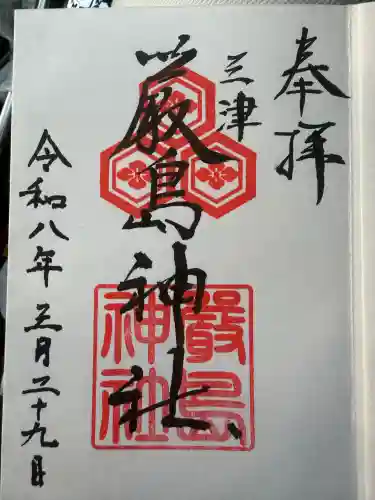 奉拝
三津
厳島神社
嚴島
神社
令和八年三月二十九日